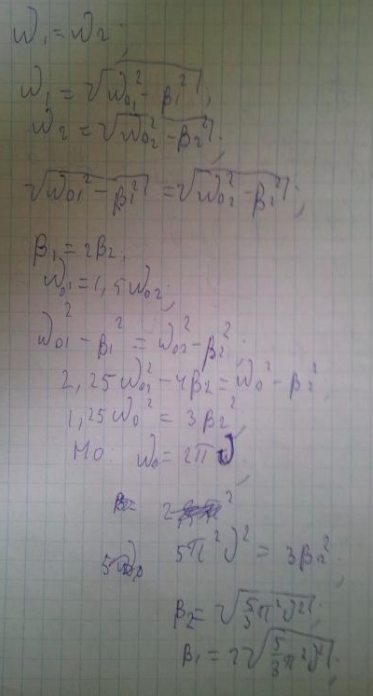 ω₁ = ω₂;
ω₁ = √(ω₀₁² - β₁²);
ω₂ = √(ω₀₂² - β₂²);
√(ω₀₁² - β₁²) = √(ω₀₂² - β₂²);
β₁ = 2β₂;
ω₀₁ = 1,5ω₀₂;
ω₀₁² - β₁² = ω₀₂² - β₂²;
2,25ω₀₂² - 4β₂ = ω₀² - β₂²;
1,25ω₀² = 3β₂²;
Но ω₀ = 2πν;
5π²ν² = 3β₂²;
β₂ = √(5/3 π²ν²);
β₁ = 2√(5/3 π²ν²);